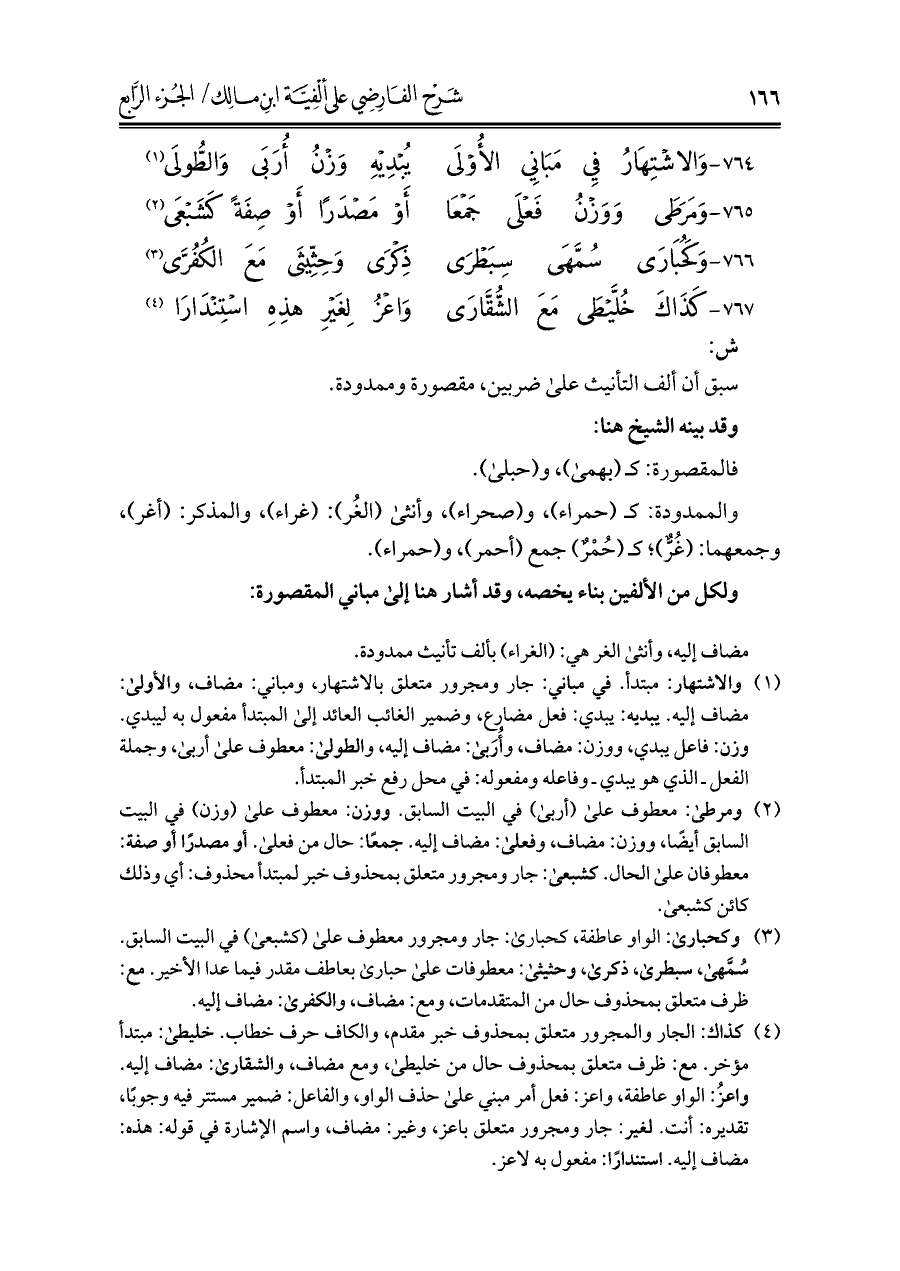 ١٦٦ شَرْح الفَارِضِي على ألْفِيَّة ابنِ مَالِك/ الجُزء الرَّابع
٧٦٤- وَالاشْتِهَارُ فِي مَبَانِي الأُوْلَى يُبْدِيْهِ وَزْنُ أُرَبَى وَالطُّولَى(١)
٧٦٥- وَمَرَطَى وَوَزْنُ فَعْلَى جَمْعَا أَوْ مَصْدَرًا أَوْ صِفَةً كَشَبْعَى(٢)
٧٦٦- وَكَحُبَارَى سُمَّهَى سِبَطْرَى ذِكْرَى وَحِثِّيثَى مَعَ الكُفُرَّى(٣)
٧٦٧- كَذَاكَ خُلَّيْطَى مَعَ الشُّقَّارَى وَاعْزُ لِغَيْرِ هذِهِ اسْتِنْدَارَا (٤)
ش:
سبق أن ألف التأنيث علىٰ ضربين، مقصورة وممدودة.
وقد بينه الشيخ هنا:
فالمقصورة: كـ (بهمىٰ)، و(حبلىٰ).
والممدودة: كـ (حمراء)، و(صحراء)، وأنثىٰ (الغُر): (غراء)، والمذكر: (أغر)،
وجمعهما: (غُرٌّ)؛ كـ (حُمْرٌ) جمع (أحمر)، و(حمراء).
ولكل من الألفين بناء يخصه، وقد أشار هنا إلىٰ مباني المقصورة:
مضاف إليه، وأنثىٰ الغر هي: (الغراء) بألف تأنيث ممدودة.
(١) والاشتهار: مبتدأ. في مباني: جار ومجرور متعلق بالاشتهار، ومباني: مضاف، والأولىٰ:
مضاف إليه. يبديه: يبدي: فعل مضارع، وضمير الغائب العائد إلىٰ المبتدأ مفعول به ليبدي.
وزن: فاعل يبدي، ووزن: مضاف، وأُرَبىٰ: مضاف إليه، والطولىٰ: معطوف علىٰ أربىٰ، وجملة
الفعل ـ الذي هو يبدي ـ وفاعله ومفعوله: في محل رفع خبر المبتدأ.
(٢) ومرطىٰ: معطوف علىٰ (أربىٰ) في البيت السابق. ووزن: معطوف علىٰ (وزن) في البيت
السابق أيضًا، ووزن: مضاف، وفعلىٰ: مضاف إليه. جمعًا: حال من فعلىٰ. أو مصدرًا أو صفة:
معطوفان علىٰ الحال. كشبعىٰ: جار ومجرور متعلق بمحذوف خبر لمبتدأ محذوف: أي وذلك
كائن كشبعىٰ.
(٣) وكحبارىٰ: الواو عاطفة، كحبارىٰ: جار ومجرور معطوف علىٰ (كشبعىٰ) في البيت السابق.
سُمَّهىٰ، سبطرىٰ، ذكرىٰ، وحثيثىٰ: معطوفات علىٰ حبارىٰ بعاطف مقدر فيما عدا الأخير. مع:
ظرف متعلق بمحذوف حال من المتقدمات، ومع: مضاف، والكفرىٰ: مضاف إليه.
(٤) كذاك: الجار والمجرور متعلق بمحذوف خبر مقدم، والكاف حرف خطاب. خليطىٰ: مبتدأ
مؤخر. مع: ظرف متعلق بمحذوف حال من خليطىٰ، ومع مضاف، والشقارىٰ: مضاف إليه.
واعزُ: الواو عاطفة، واعز: فعل أمر مبني علىٰ حذف الواو، والفاعل: ضمير مستتر فيه وجوبًا،
تقديره: أنت. لغير: جار ومجرور متعلق باعز، وغير: مضاف، واسم الإشارة في قوله: هذه:
مضاف إليه. استندارًا: مفعول به لاعز.